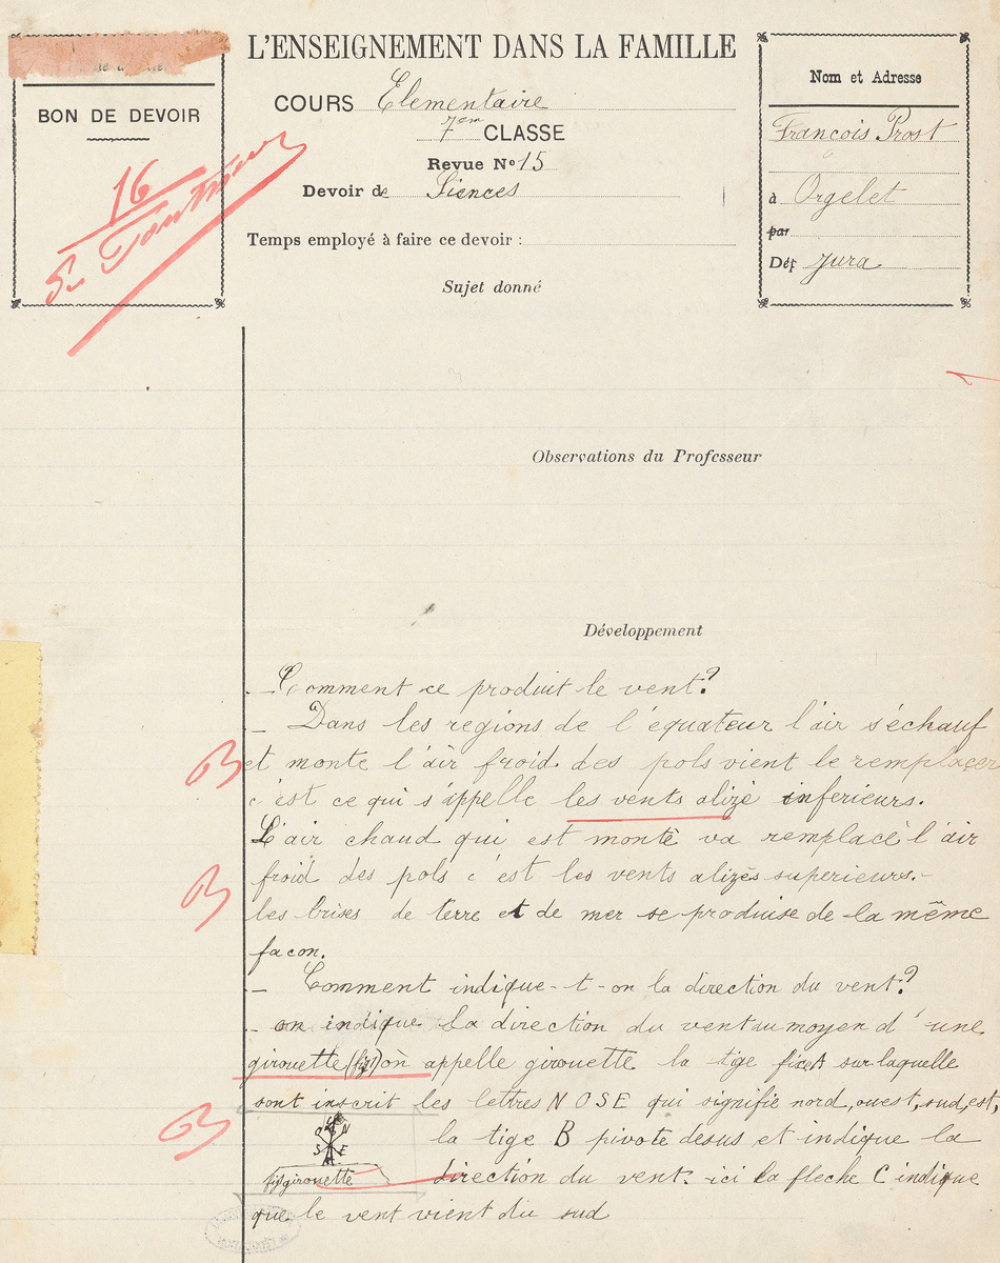 L'ENSEIGNEMENT DANS LA FAMILLE
BON DE DEVOIR
16
COURS Elementaire
7em CLASSE
Revue No 15
Devoir de Siences
Temps employé à faire ce devoir :
Sujet donné
Nom et Adresse
Francois Prost
à Orgelet
par
Dép Jura
Observations du Professeur
Développement
- Comment ce produit le vent?
- Dans les regions de l'équateur l'air s'échauf
B et monte l'air froid des pols vient le remplacer
c'est ce qui s'appelle les vents alizé inferieurs.
L'air chaud qui est monté va remplacé l'air
B froid des pols c'est les vents alizés superieurs.-
les brises de terre et de mer se produise de la même
facon.
- Comment indique-t-on la direction du vent?
- on indique la direction du vent au moyen d'une
girouette (fig1) on appelle girouette la tige fixe A sur laquelle
sont inscrit les lettres N O S E qui signifie nord, ouest, sud, est,
B la tige B pivote desus et indique la
O N
S E
A
fig1 girouette direction du vent. ici la fleche C indique
que le vent vient du sud